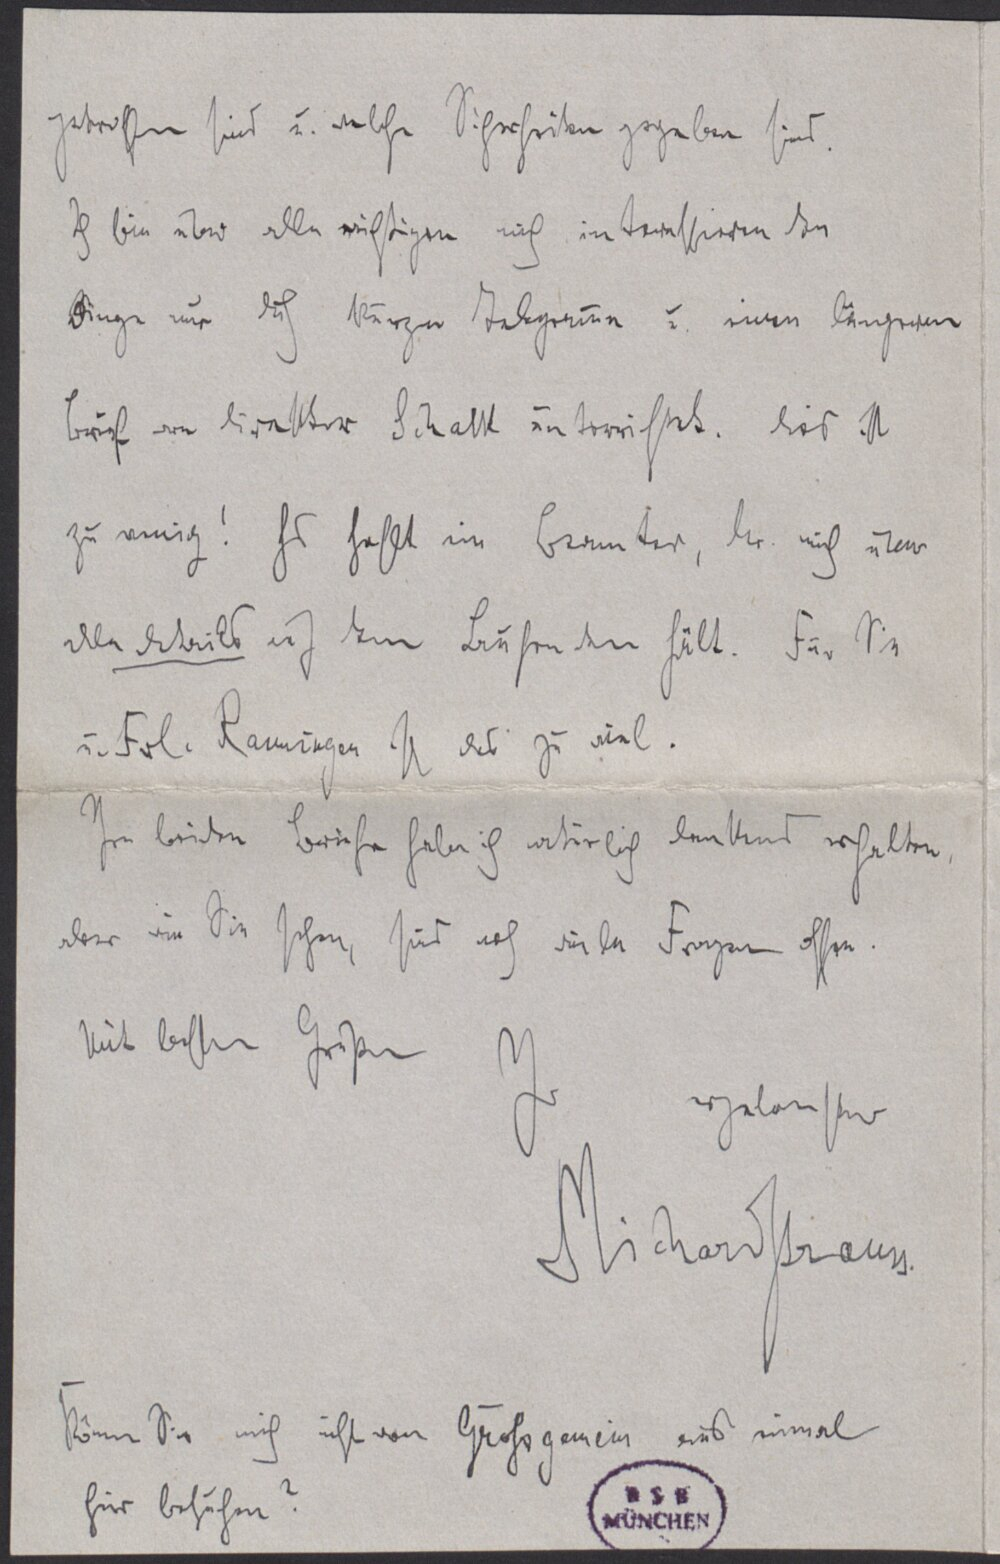 getroffen sind u. welche Sicherheiten gegeben sind.
Ich bin über alle wichtigen mich interessierenden
Dinge nur durch kurze Telegramme u. einen längeren
Brief von Direktor Schalk unterrichtet. Dies ist
zu wenig! Es fehlt ein Beamter, der mich über
alle Details auf dem Laufenden hält. Für Sie
u. Frl. ist das zu viel.
Ihre beiden Briefe habe ich natürlich dankend erhalten,
aber wie Sie sehen, sind noch viele Fragen offen.
Mit besten Grüßen Ihr ergebenster
Richard Strauss.
Können Sie mich nicht von Grossgmain aus einmal
hier besuchen?
BSB
MÜNCHEN